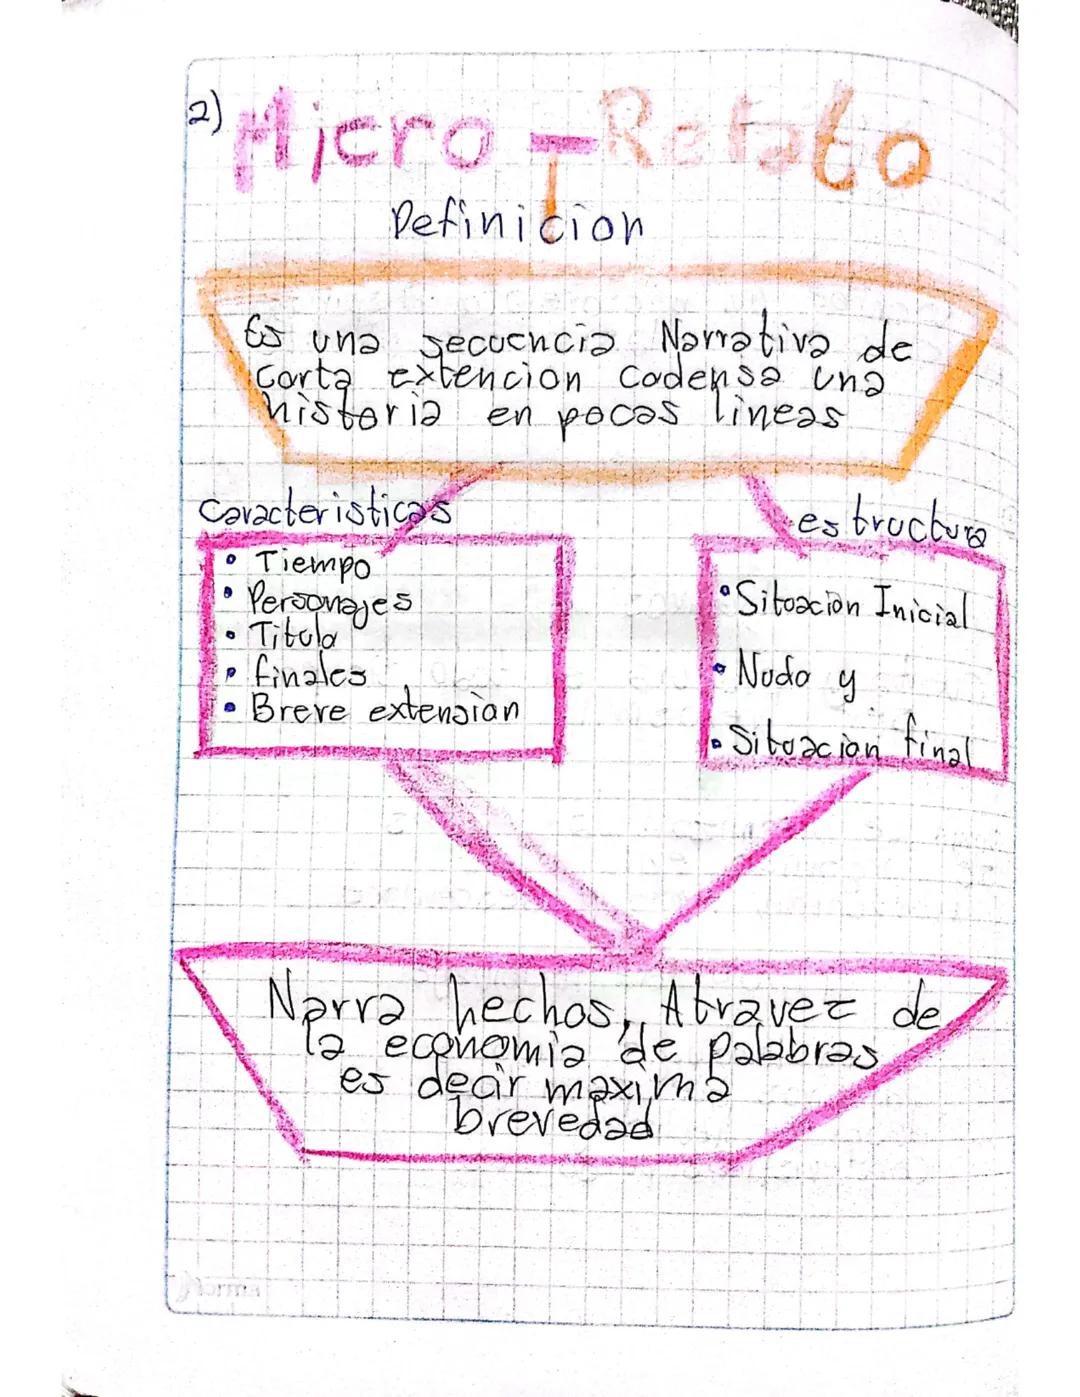 2) Micro-Relato
Definicion
Es una secuencia Narrativa de
corta extencion codensa una
historia en pocas lineas
caracteristicas
• Tiempo
• Personajes
• Titulo
• finales
• Breve extension
estructura
• Situacion Inicial
• Nudo y
• Situacion final
Narra hechos, Atravez de
la economia de palabras
es decir maxima
brevedad